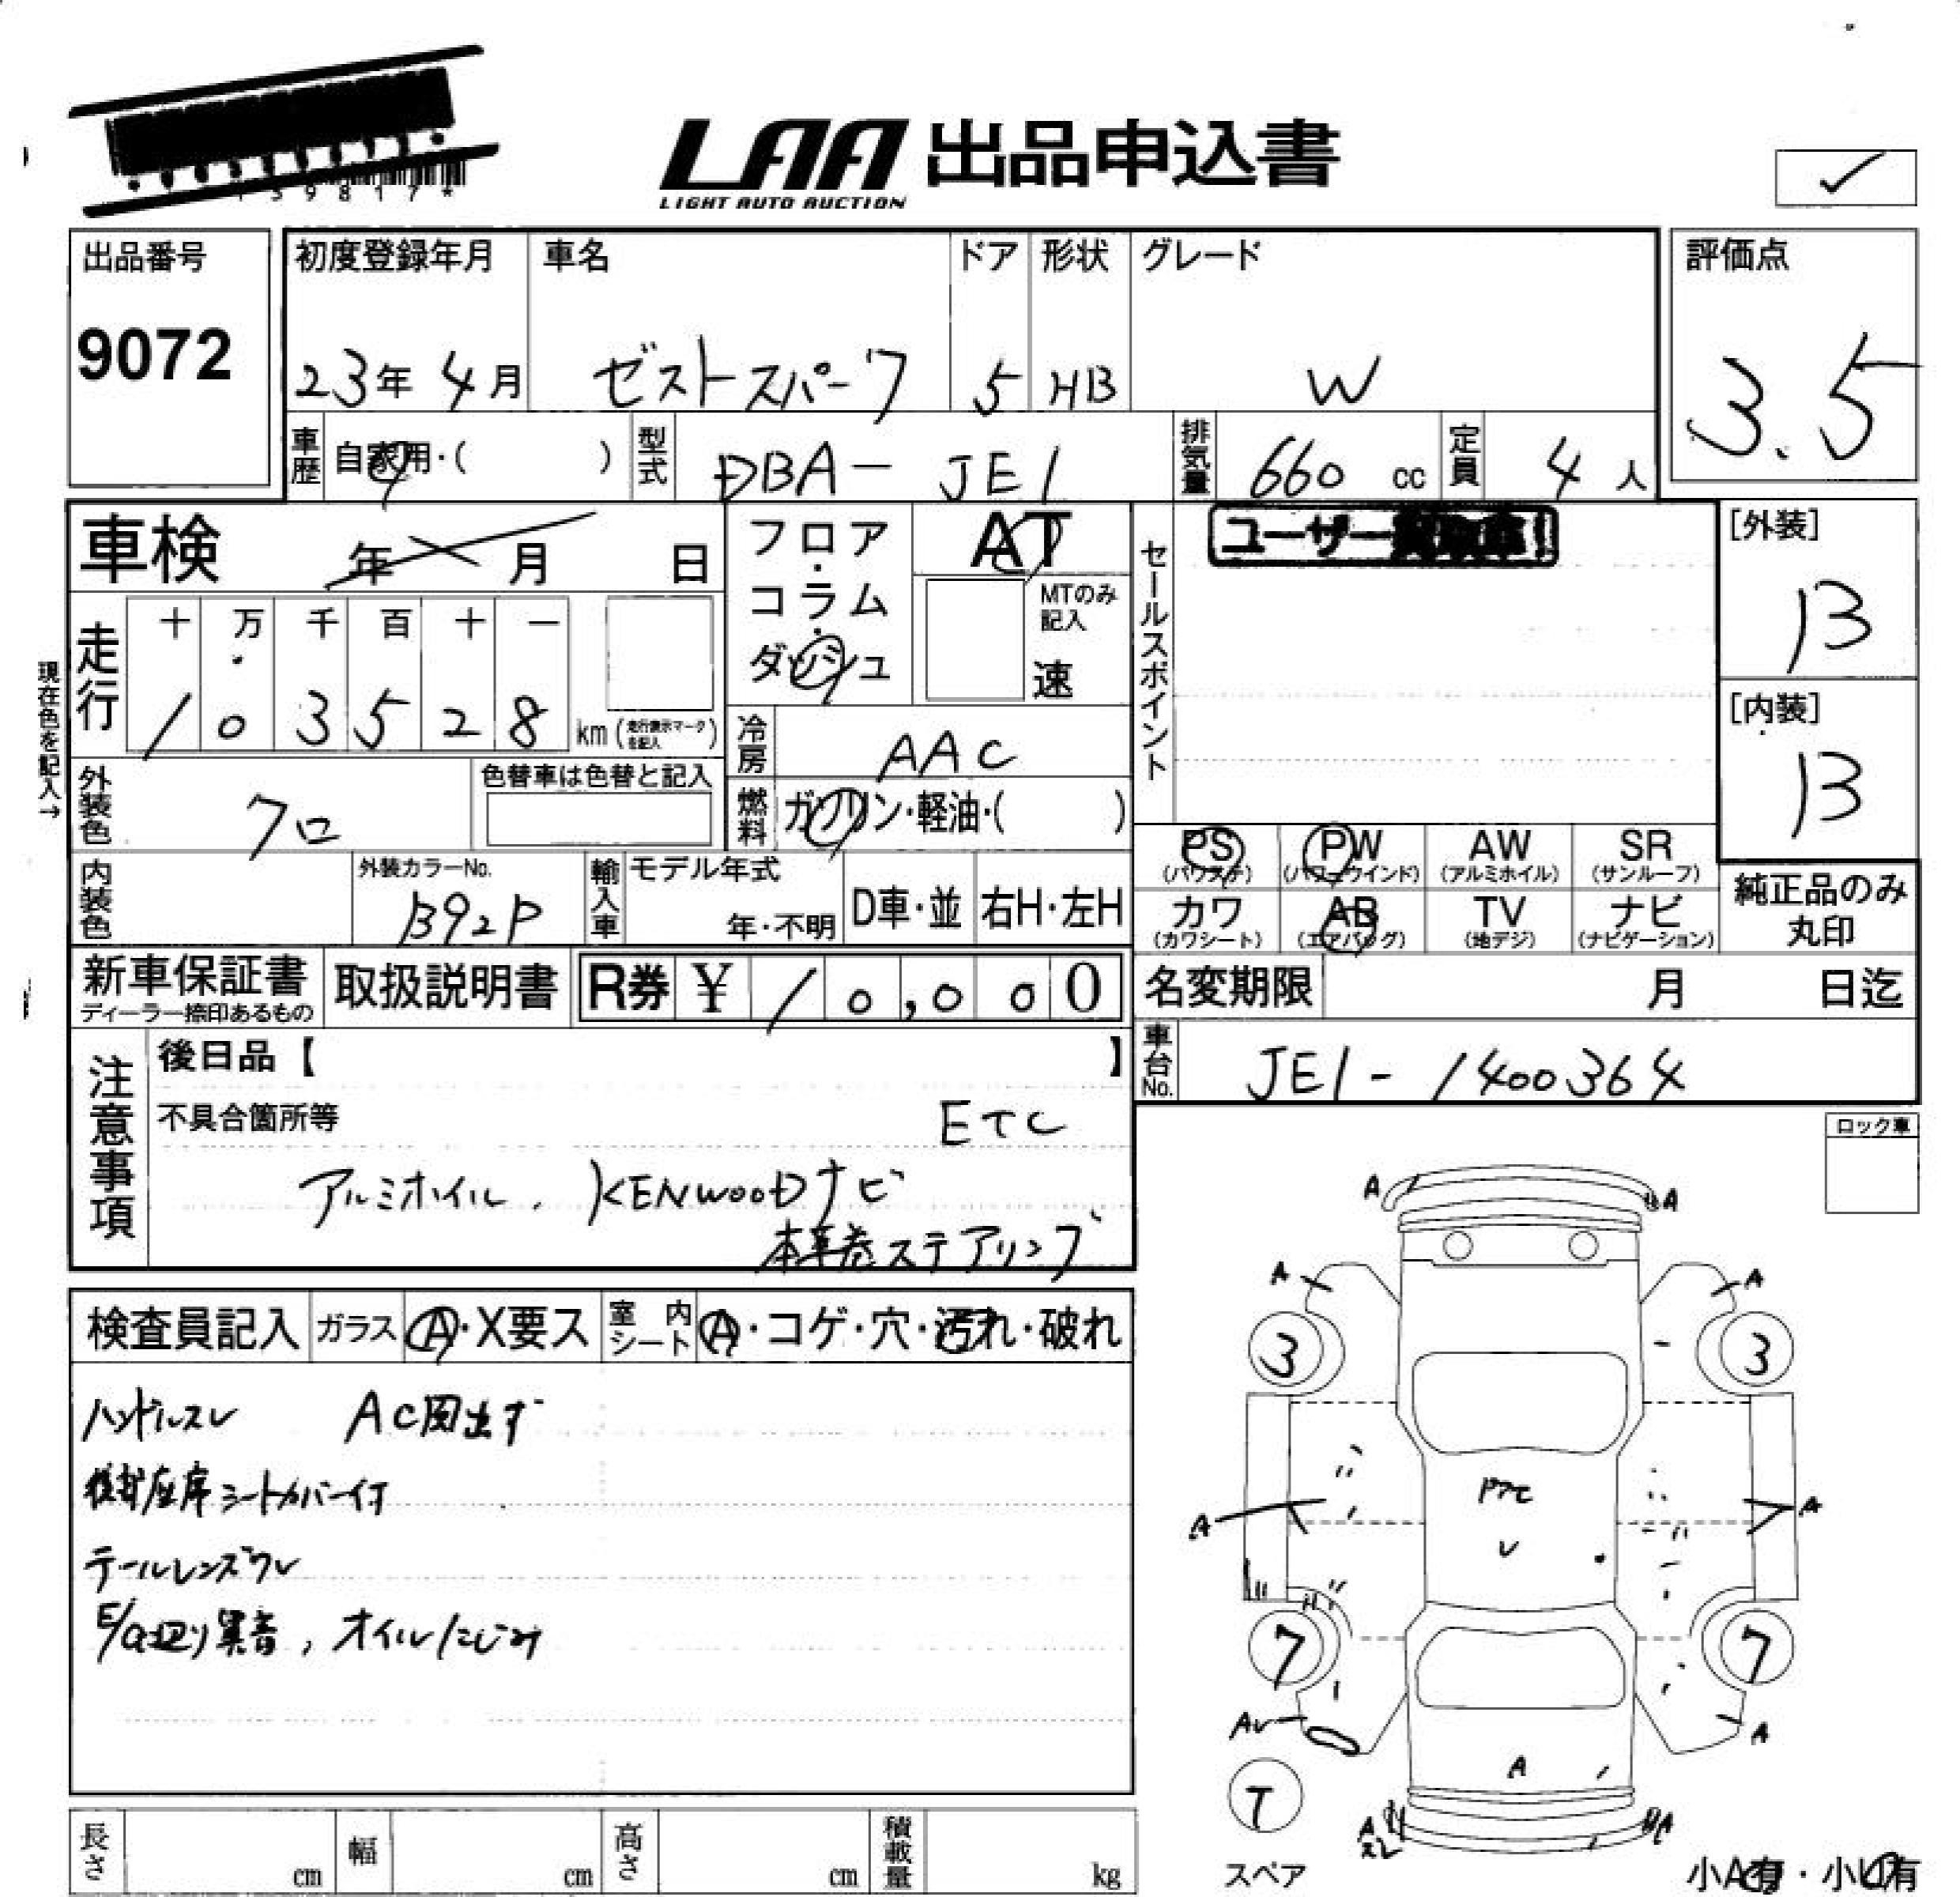 LAA 出品申込書
LIGHT AUTO AUCTION
出品番号
9072
初度登録年月
23年 4月
車名
ゼストスパーク
ドア
5
形状
HB
グレード
W
評価点
3.5
車歴
自家用・( )
型式
DBA- JE1
排気量
660 cc
定員
4 人
車検 年 月 日
フロア・コラム・ダッシュ
AT
MTのみ記入
速
セールスポイント
ユーザー
[外装]
B
[内装]
B
現在色を記入→
走行
十 万 千 百 十 一
1 0 3 5 2 8 km (走行表示マークを記入)
冷房
AAC
外装色
クロ
色替車は色替と記入
燃料
ガソリン・軽油・( )
内装色
外装カラーNo.
B92P
輸入車
モデル年式
年・不明
D車・並
右H・左H
PS (パワステ)
PW (パワーウインド)
AW (アルミホイル)
SR (サンルーフ)
カワ (カワシート)
AB (エアバッグ)
TV (地デジ)
ナビ (ナビゲーション)
純正品のみ丸印
新車保証書
ディーラー捺印あるもの
取扱説明書
R券 ¥ 10,000
名変期限 月 日迄
車台No.
JE1-1400364
注意事項
後日品【 】
不具合箇所等
ETC
アルミホイル、KENWOODナビ
本革巻ステアリング
ロック車
検査員記入
ガラス A・X要ス
室内シート A・コゲ・穴・汚れ・破れ
ハンドルスレ AC図出ず
後部座席シートカバー付
テールレンズワレ
E/G廻り異音, オイルにじみ
A
A
A
A
3
3
A
A
V
7
7
AV
A
A
T
スペア
A
スレ
A
小A有・小U有
長さ cm
幅 cm
高さ cm
積載量 kg